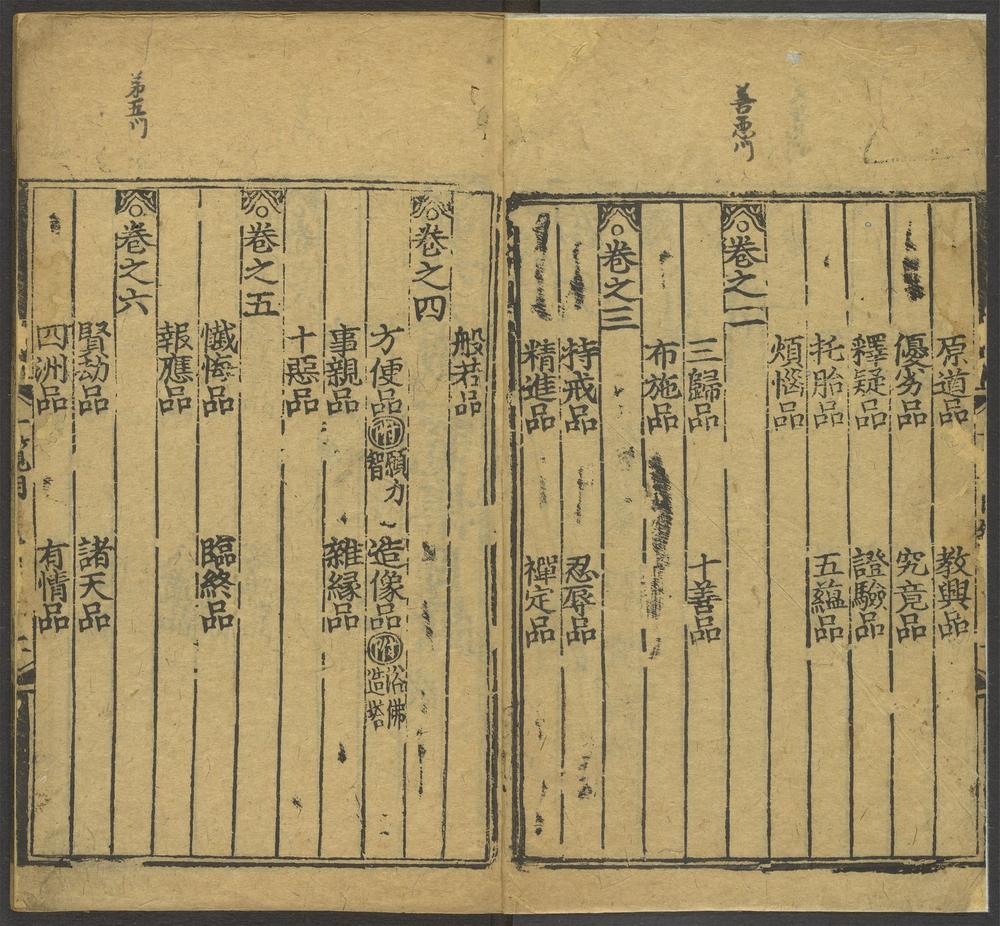 善惡川
原道品 教興品
優劣品 究竟品
釋疑品 證驗品
托胎品 五蘊品
煩惱品
卷之二
三歸品 十善品
布施品
卷之三
持戒品 忍辱品
精進品 禪定品
般若品
卷之四
方便品 附 願力 智 造像品 附 浴佛 造塔
事親品 雜縁品
十惡品
卷之五
懺悔品 臨終品
報應品
卷之六
賢劫品 諸天品
四洲品 有情品
一覽目